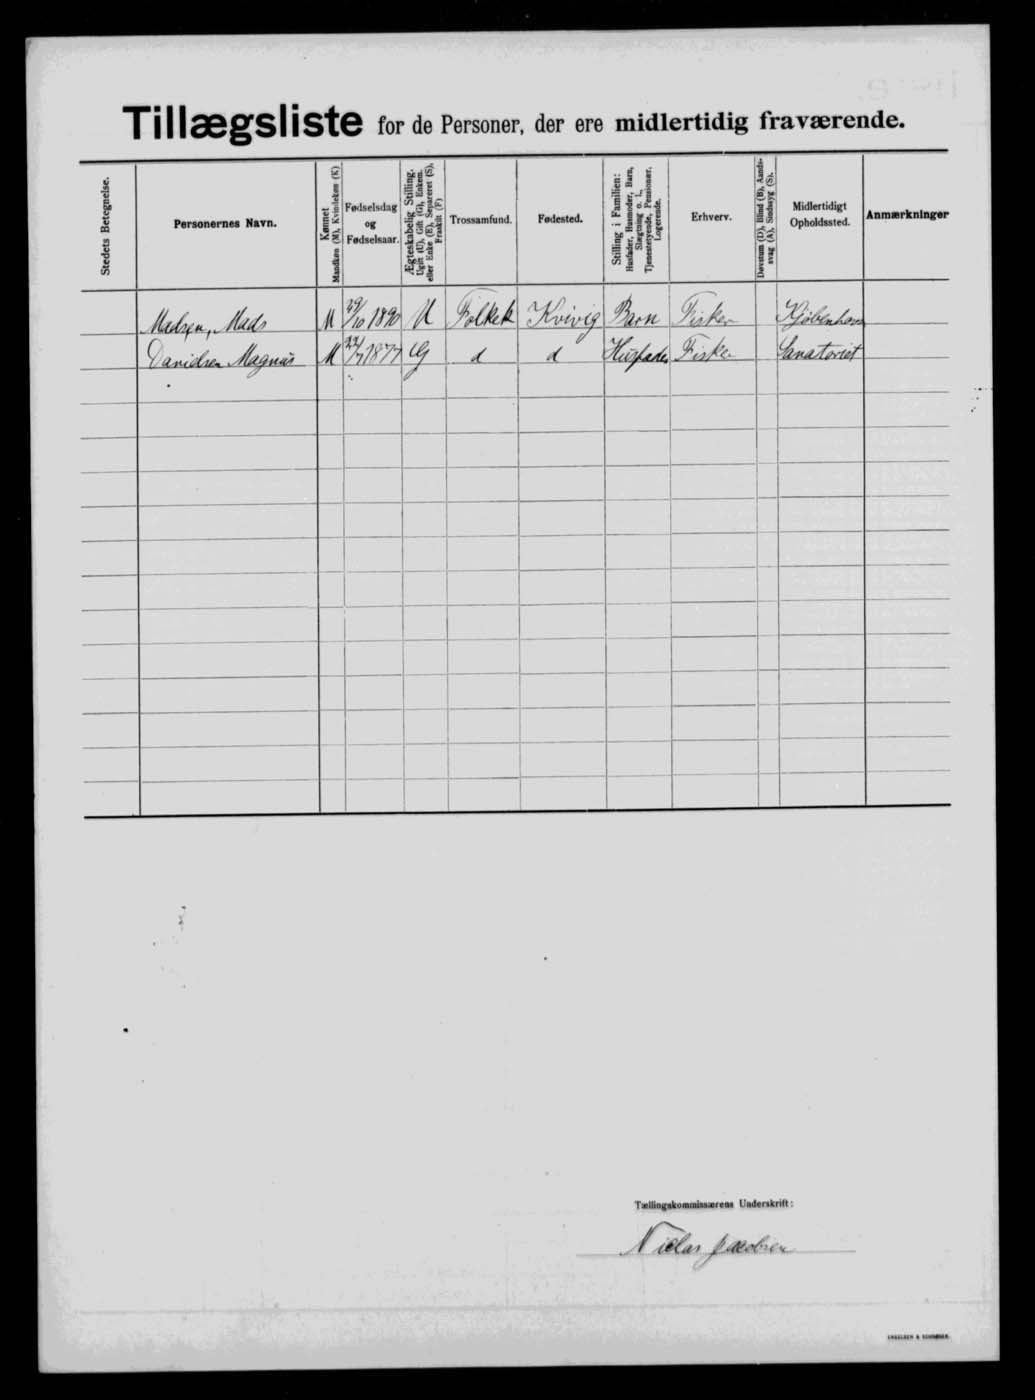 Tillægsliste for de Personer, der ere midlertidig fraværende.
Stedets Betegnelse.
Personernes Navn.
Kønnet
Mandkøn (M), Kvindekøn (K)
Fødselsdag
og
Fødselsaar.
Ægteskabelig Stilling.
Ugift (U), Gift (G), Enkem.
eller Enke (E), Separeret (S),
Fraskilt (F)
Trossamfund.
Fødested.
Stilling i Familien:
Husfader, Husmoder, Barn,
Slægtning o. l.,
Tjenestetyende, Pensionær,
Logerende.
Erhverv.
Døvstum (D), Blind (B), Aands-
svag (A), Sindssyg (S).
Midlertidigt
Opholdssted.
Anmærkninger
Madsen, Mads M 29/10 1890 U Folkek Kvivig Barn Fisker Kjøbenhavn
Davidsen Magnus M 22/7 1877 G d d Husfader Fisker Sanatoriet
Tællingskommissærens Underskrift:
Niclas Jacobsen